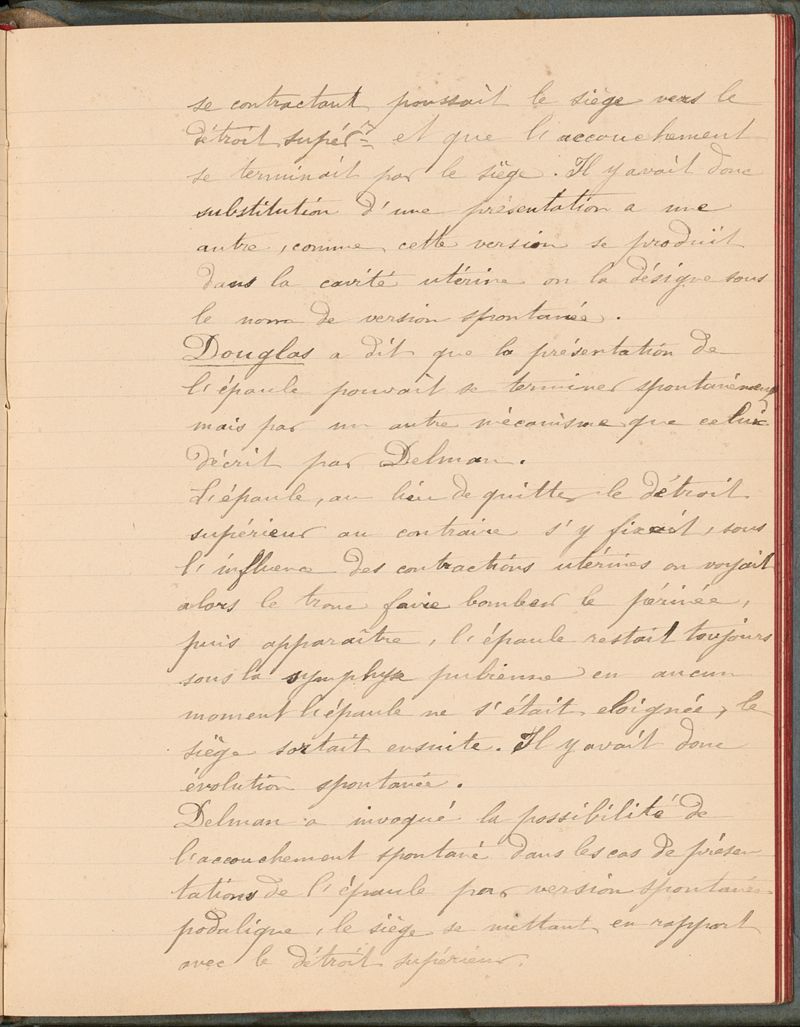 se contractant poussait le siège vers le
détroit supér^r et que l'accouchement
se terminait par le siège. Il y avait donc
substitution d'une présentation a une
autre, comme cette version se produit
dans la cavité utérine on la désigne sous
le nom de version spontanée.
Douglas a dit que la présentation de
l'épaule pouvait se terminer spontanément
mais par un autre mécanisme que celui
décrit par Delman.
L'épaule, au lieu de quitter le détroit
supérieur au contraire s'y fixait, sous
l'influence des contractions utérines on voyait
alors le tronc faire bomber le périnée,
puis apparaître, l'épaule restait toujours
sous la symphyse pubienne en aucun
moment l'épaule ne s'était eloignée, le
siège sortait ensuite. Il y avait donc
évolution spontanée.
Delman a invoqué la possibilité de
l'accouchement spontané dans les cas de présen-
tations de l'épaule par version spontanée
podalique, le siège se mettant en rapport
avec le détroit supérieur.